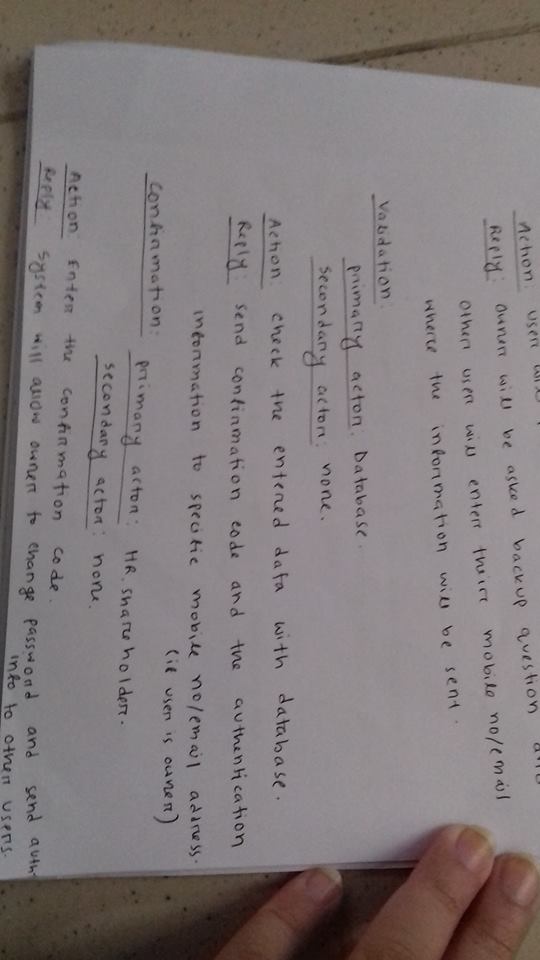 Action: user will
Reply: owner will be asked backup question and
other user will enter their mobile no/email
where the information will be sent.
Validation:
primary actor: Database.
secondary actor: none.
Action: check the entered data with database.
Reply: send confirmation code and the authentication
information to specific mobile no/email address.
(if user is owner)
Confirmation:
primary actor: HR, shareholder.
secondary actor: none.
Action: Enter the confirmation code.
Reply: System will allow owner to change password and send auth
info to other users.